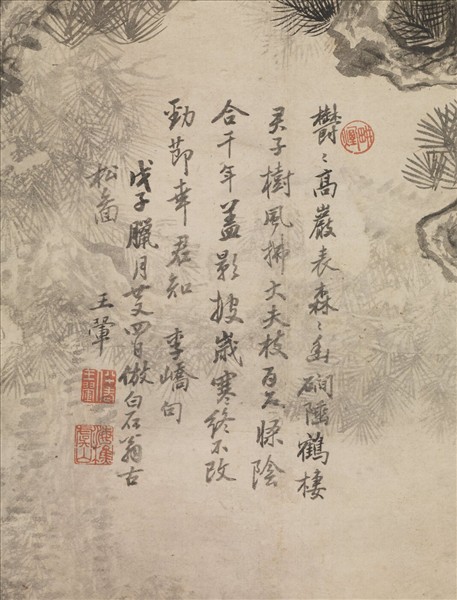 欝〻高巖表森〻幽磵陲鶴棲
君子樹風拂大夫枝百尺條陰
合千年蓋影披歲寒終不改
勁節幸君知 李嶠句
戊子臘月廿又四日倣白石翁古
松圖 王翬